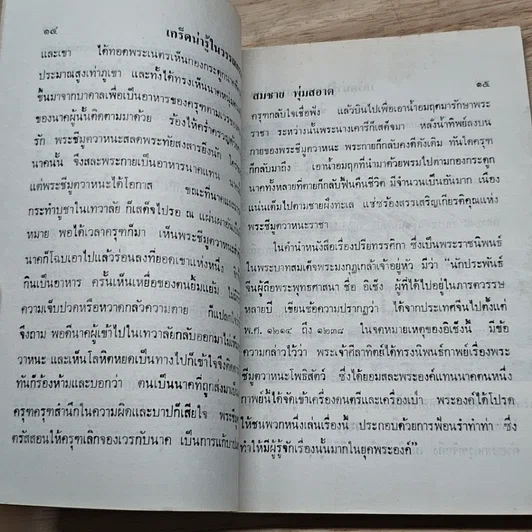 ๑๔ เกร็ดน่ารู้ใน
และเขา ได้ทอดพระเนตรเห็นกองกระดูก
ประมาณสูงเท่าภูเขา และทั้งได้ทรงเห็นนาคหนุ่ม
ขึ้นมาจากบาดาลเพื่อเป็นอาหารของครุฑตาม
ของนาคผู้นั้นก็ติดตามมาด้วย ร้องไห้คร่ำครวญ
รัก พระชีมูตวาหนะสลดพระทัยสงสารยิ่งนัก
นาคนั้น จึงสละพระกายเป็นอาหารนาคแทน
แต่พระชีมูตวาหนะได้โอกาส ขณะที่นาค
กระทำบูชาในเทวาลัย ก็เสด็จไปรอ ณ แผ่นผา
หมาย พอได้เวลาครุฑก็มา เห็นพระชีมูตวาหนะ
นาคก็โฉบเอาไปแล้วร่อนลงที่ยอดเขาแห่งหนึ่ง
กินเป็นอาหาร ครั้นเห็นเหยื่อของตนยิ้มแย้ม
ความเจ็บปวดหรือหวาดกลัวความตาย ก็แปลก
จึงถาม พอดีนาคผู้เข้าไปในเทวาลัยกลับออกมา
วาหนะ และเห็นโลหิตหยดเป็นทางไปก็เข้าใจจึง
ทันก็ร้องห้ามและบอกว่า ตนเป็นนาคที่ถูกส่งมา
ครุฑครุฑสำนึกในความผิดและบาปก็เสียใจ
ตรัสสอนให้ครุฑเลิกจองเวรกับนาค เป็นการแก้บาป
สมชาย พุ่มสอาด ๑๕
ครุฑกลับใจเชื่อฟัง แล้วบินไปเพื่อเอาน้ำอมฤตมารักษาพระ
ราชา ระหว่างนั้นพระนางเคารีก็เสด็จมา หลั่งน้ำทิพย์ลงบน
กายของพระชีมูตวาหนะ พระกายก็กลับคงดีดังเดิม ทันใดครุฑ
ก็กลับมาถึง เอาน้ำอมฤตที่นำมาด้วยพรมไปตามกองกระดูก
นาคทั้งหลายที่ตายก็กลับฟื้นคืนชีวิต มีจำนวนเป็นอันมาก เนื่อง
แน่นเต็มไปตามชายฝั่งทะเล แซ่ซร้องสรรเสริญเกียรติคุณแห่ง
พระชีมูตวาหนะราชา
ในคำนำหนังสือเรื่องปรียทรรศิกา ซึ่งเป็นพระราชนิพนธ์
ในพระบาทสมเด็จพระมงกุฎเกล้าเจ้าอยู่หัว มีว่า “นักประพันธ์
จีนผู้ถือพระพุทธศาสนา ชื่อ อิเช็ง ผู้ที่ได้ไปอยู่ในภารตวรรษ
หลายปี เขียนข้อความปรากฏว่า ได้จากประเทศจีนไปตั้งแต่
พ.ศ. ๑๒๑๔ ถึง ๑๒๓๘ ในจดหมายเหตุของอิเช็งนี้ มีข้อ
ความกล่าวไว้ว่า พระเจ้าศีลาทิตย์ได้ทรงนิพนธ์กาพย์เรื่องพระ
ชีมูตวาหนะโพธิสัตว์ ซึ่งได้ยอมสละพระองค์แทนนาคตนหนึ่ง
กาพย์นี้ได้จัดเข้าเครื่องดนตรีและเครื่องเป่า พระองค์ได้โปรด
ให้ชนพวกหนึ่งเล่นเรื่องนี้ ประกอบด้วยการฟ้อนรำทำท่า ซึ่ง
ทำให้มีผู้รู้จักเรื่องนั้นมากในยุคพระองค์”